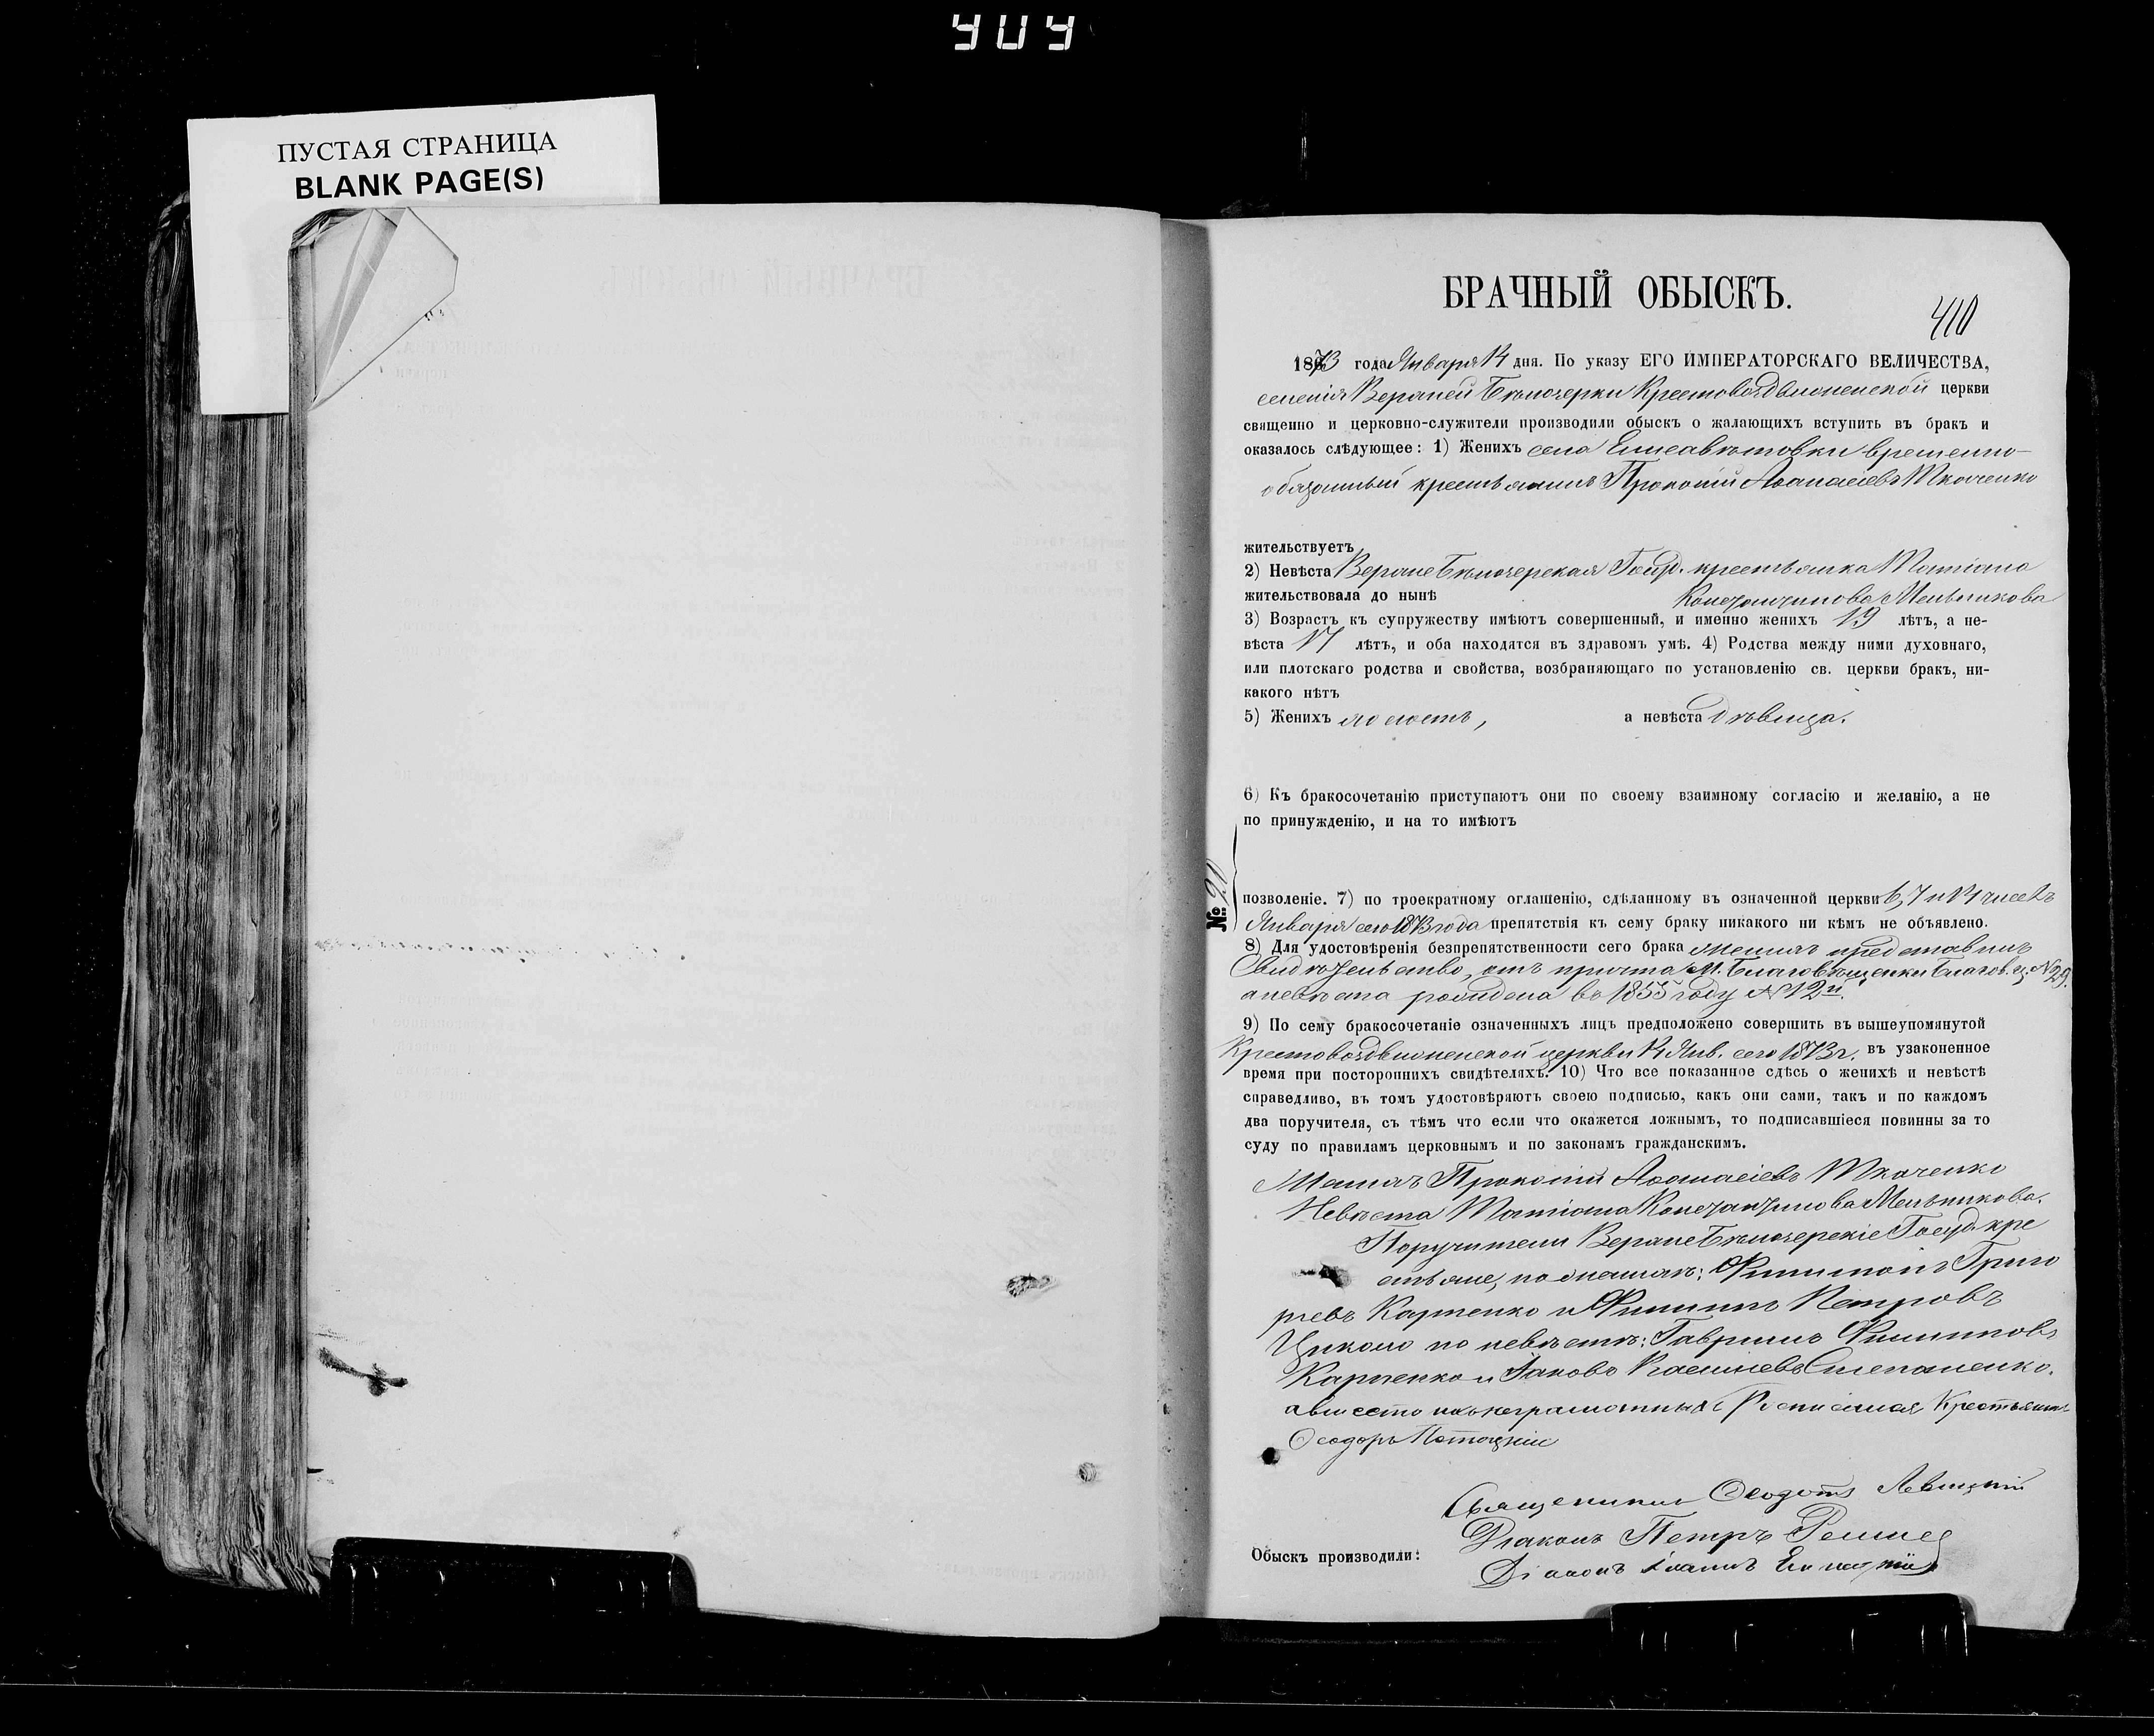 409
ПУСТАЯ СТРАНИЦА
BLANK PAGE(S)
БРАЧНЫЙ ОБЫСКЪ.
410
1873 года Января 14 дня. По указу ЕГО ИМПЕРАТОРСКАГО ВЕЛИЧЕСТВА,
селенія Верхней Бѣлозерки Крестовоздвиженской церкви
священно и церковно-служители производили обыск о жалающихъ вступить въ бракъ и
оказалось слѣдующее: 1) Женихъ села Елисаветовки временно-
обязанный крестьянинъ Прокопій Аѳанасіевъ Ткаченко
жительствуетъ
2) Невѣста Верхне Бѣлозерская Госуд. крестьянка Татіана
жительствовала до нынѣ Константинова Мельникова
3) Возрастъ къ супружеству имѣютъ совершенный, и именно женихъ 19 лѣтъ, а не-
вѣста 17 лѣтъ, и оба находятся въ здравомъ умѣ. 4) Родства между ними духовнаго,
или плотскаго родства и свойства, возбраняющаго по установленію св. церкви бракъ, ни-
какого нѣтъ
5) Женихъ холостъ, а невѣста дѣвица.
6) Къ бракосочетанію приступаютъ они по своему взаимному согласію и желанію, а не
по принужденію, и на то имѣютъ
№
позволеніе. 7) по троекратному оглашенію, сдѣланному въ означенной церкви 6, 7 и 14 числѣ
Января сего 1873 года препятствія къ сему браку никакого ни кѣмъ не объявлено.
8) Для удостовѣренія безпрепятственности сего брака женихъ представилъ
Свидѣтельство, отъ причта М. Благовѣщенки Благов. ц. №29.
а невѣста рождена въ 1855 году № 12й.
9) По сему бракосочетаніе означенныхъ лицъ предположено совершить въ вышеупомянутой
Крестовоздвиженской церкви 14 Янв. сего 1873 г. въ узаконенное
время при постороннихъ свидѣтеляхъ. 10) Что все показанное сдѣсь о женихѣ и невѣстѣ
справедливо, въ томъ удостовѣряютъ своею подписью, какъ они сами, такъ и по каждомъ
два поручителя, съ тѣмъ что если что окажется ложнымъ, то подписавшіеся повинны за то
суду по правиламъ церковнымъ и по законамъ гражданскимъ.
Женихъ Прокопій Аѳанасіевъ Ткаченко
Невѣста Татіана Константинова Мельникова.
Поручители Верхне Бѣлозерскіе Госуд. кре
стьяне, по женихѣ: Филимонъ Григо
рьевъ Карпенко и Филипъ Петровъ
Цикало по невѣстѣ: Гавріилъ Филиповъ
Карпенко и Іаковъ Василіевъ Степаненко.
а вмѣсто ихъ неграмотныхъ Росписался Крестьянинъ
Ѳеодоръ Потоцкій
Священникъ Ѳеодотъ Левицкій
Діаконъ Петръ
Обыскъ производили:
Діаконъ Іоаннъ